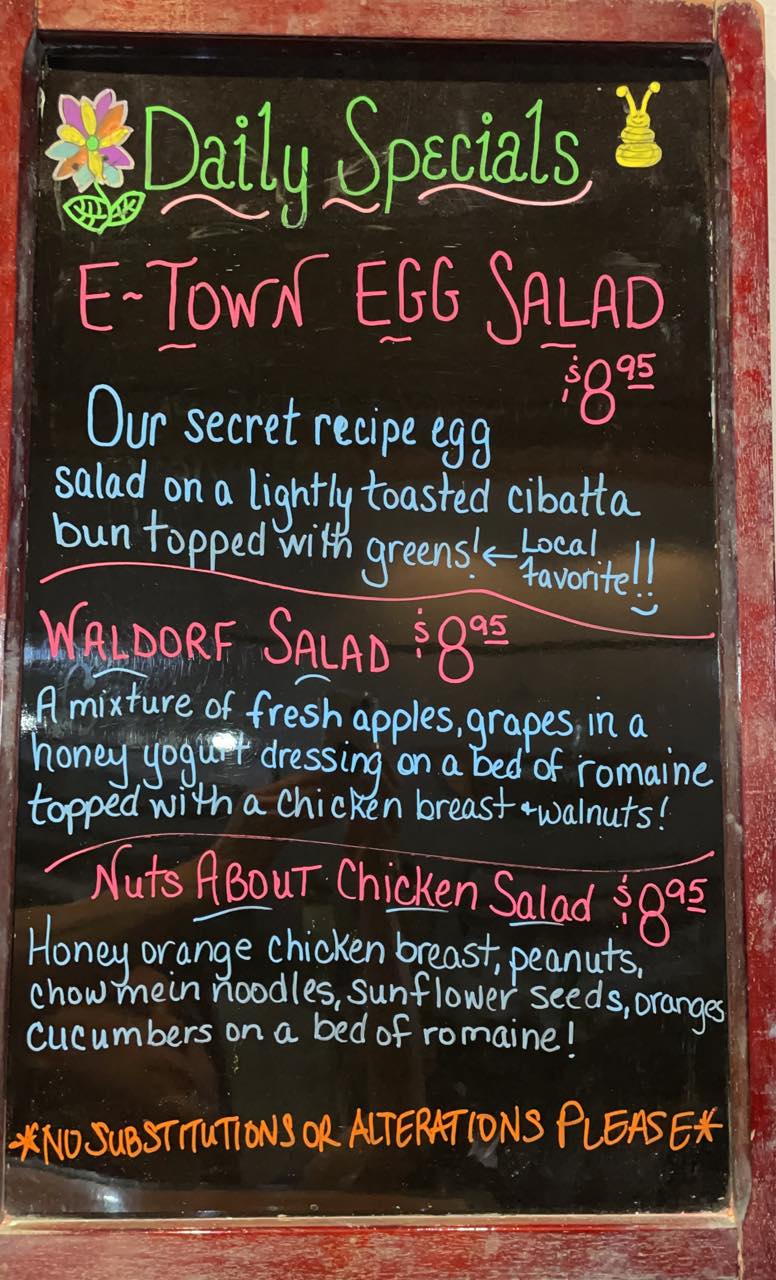 Daily Specials
E-Town EGG SALAD
$8.95
Our secret recipe egg
salad on a lightly toasted cibatta
bun topped with greens! ← Local
favorite!!
WALDORF SALAD $8.95
A mixture of fresh apples, grapes in a
honey yogurt dressing on a bed of romaine
topped with a chicken breast + walnuts!
Nuts ABOUT Chicken Salad $8.95
Honey orange chicken breast, peanuts,
chow mein noodles, sunflower seeds, oranges
cucumbers on a bed of romaine!
*NO SUBSTITUTIONS OR ALTERATIONS PLEASE*